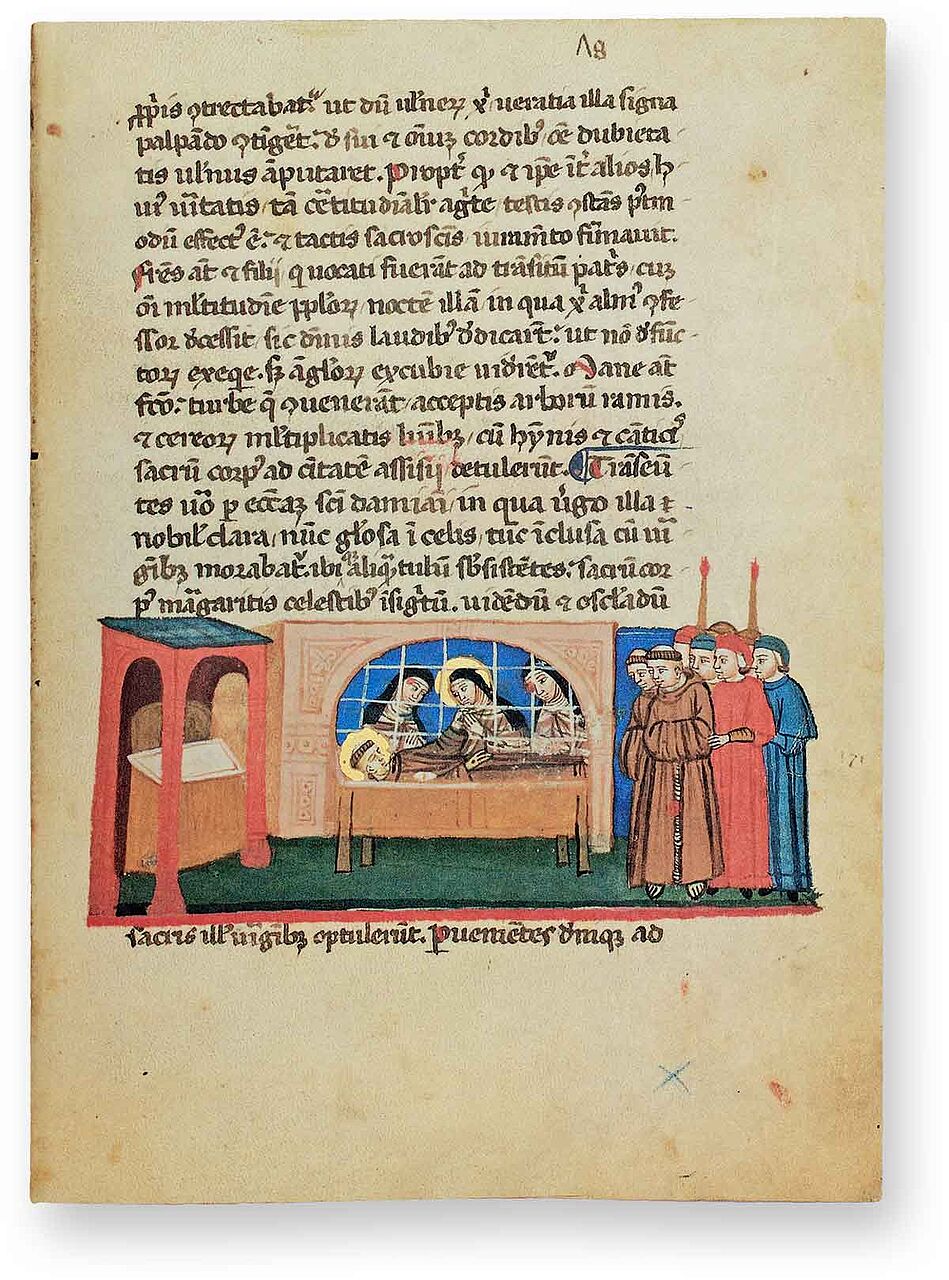 ꝓpͥis ꝯtrectabat᷑ ut dū ulneꝝ xͥ ueratia illa signa
palpādo ꝯtīgēt. d̕ sui ⁊ oīuꝫ cordibꝰ oē dubieta
tis ulnus āputaret. Propt̕ qͥ ⁊ ip̄e īt̕ alios h
uiꝰ uītatis tā cētitudialr̕ agīte testis ꝯstās pͥm
odū effectꝰ ē. ⁊ tactis sacroscīs iuramīto firmauit.
frēs at̄ ⁊ filij q uocati fuerāt ad trāsitū pat̕s cuꝫ
oī ml̕titudīe pplōꝝ noctē illā in qua xͥ almꝰ ꝯfe
ssor d̕cessit sic dīnis laudibꝰ d̕dicarēt. ut nō d̕fūc
toꝝ exeqe. sꝫ āgloꝝ excubie uidirēt᷑. Mane at̄
fc̄o. turbe q̄ ꝯuenerāt acceptis arboꝝ ramis.
⁊ cereoꝝ ml̕tiplicatis lūibꝫ cū hȳnis ⁊ cāticꝭ
sacrū corpꝰ ad citatē assisij detulerūt. Trāseū
tes uͦo p ecc̄aꝫ scī damiani in qua uͥgo illa
nobil̕ clara nūc gl̕osa ī celis tūc īclusa cū uiͥ
gībꝫ morabat᷑. ibi aliqͣtulū sb̕sistētes. sacrū cor
pꝰ mārgaritis celestibꝰ īsigtū. uidēdū ⁊ oscl̕adū
sacris ill̕ uiͥgībꝫ optulerūt. Puenīētes dīnqꝫ ad